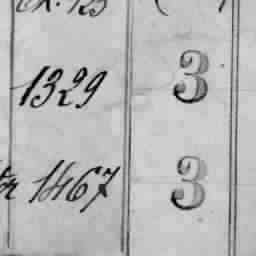 123
1329 3
1467 3